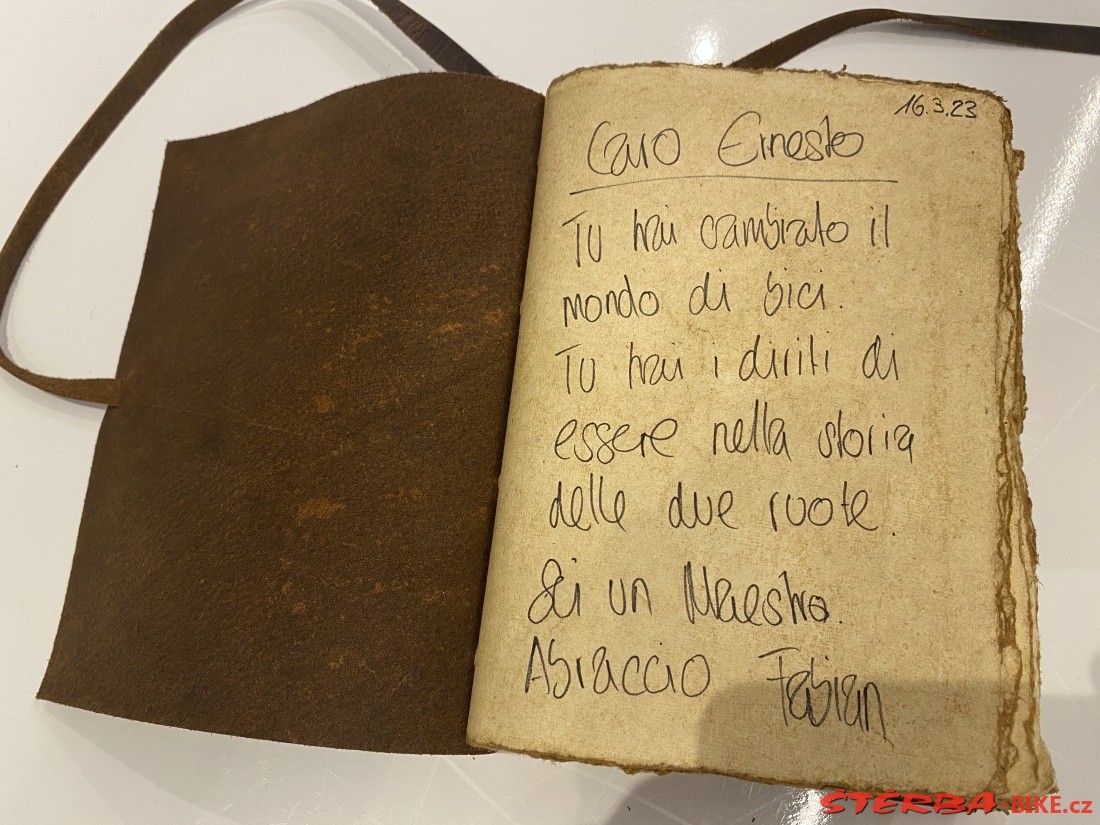 16.3.23
Caro Ernesto
Tu hai cambiato il
mondo di bici.
Tu hai i diriti di
essere nella storia
delle due ruote.
Sei un Maestro.
Abraccio Fabian
ŠTĚRBA-BIKE.cz